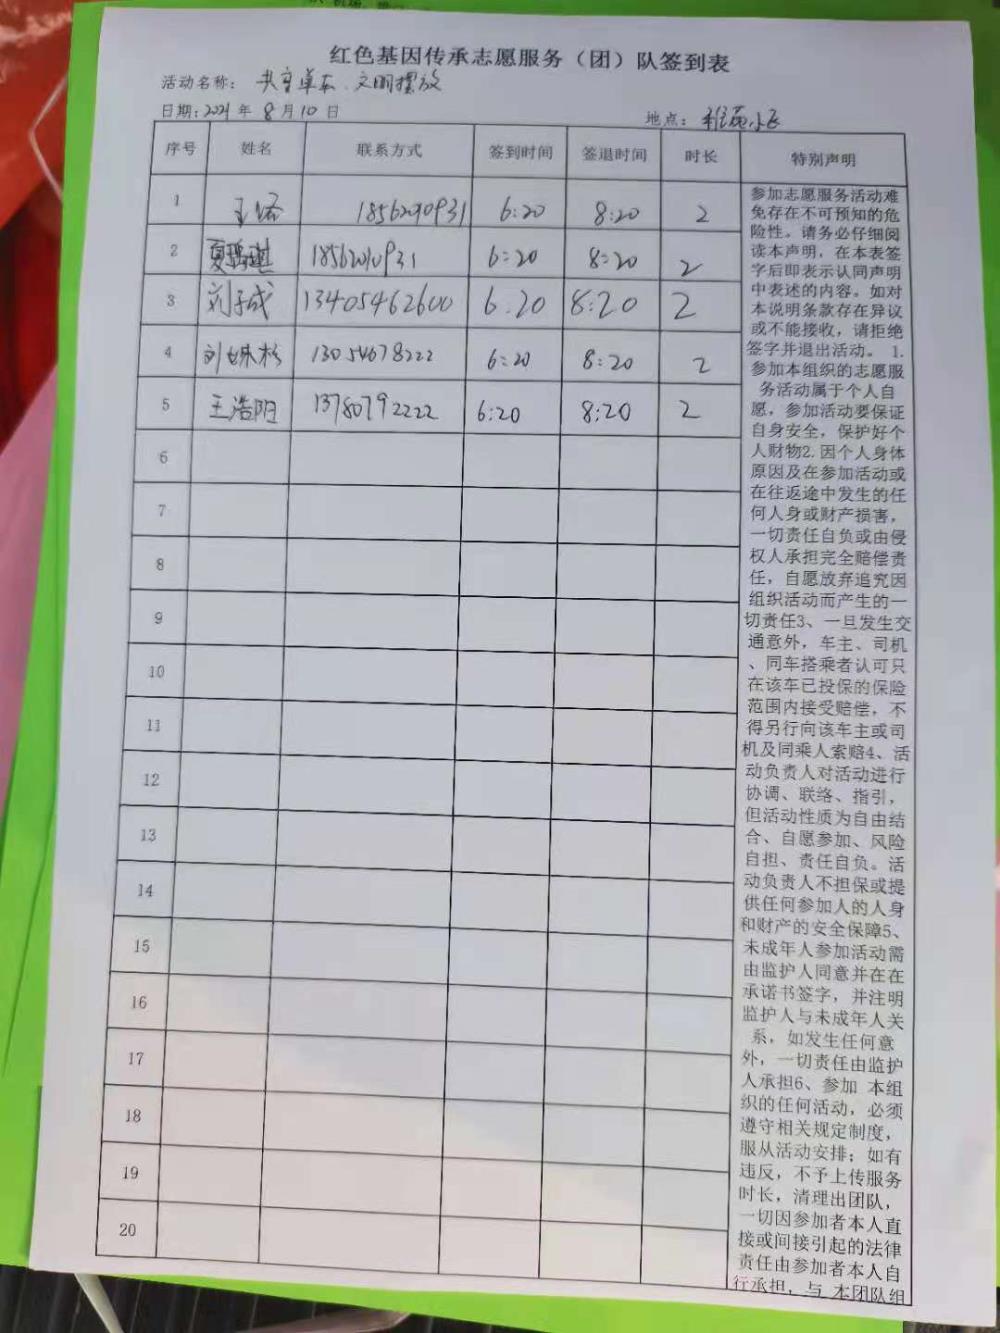 红色基因传承志愿服务（团）队签到表
活动名称： 共享单车、文明摆放
日期：2021年 8月10日 地点：雅苑小区
序号 姓名 联系方式 签到时间 签退时间 时长 特别声明
1 18562010931 6:20 8:20 2
2 18562010931 6:20 8:20 2
3 刘子成 13405462600 6.20 8:20 2
4 刘姝杉 13054678222 6:20 8:20 2
5 王浩阳 13780792222 6:20 8:20 2
6
7
8
9
10
11
12
13
14
15
16
17
18
19
20
参加志愿服务活动难
免存在不可预知的危
险性。请务必仔细阅
读本声明，在本表签
字后即表示认同声明
中表述的内容。如对
本说明条款存在异议
或不能接收，请拒绝
签字并退出活动。 1.
参加本组织的志愿服
务活动属于个人自
愿，参加活动要保证
自身安全，保护好个
人财物2.因个人身体
原因及在参加活动或
在往返途中发生的任
何人身或财产损害，
一切责任自负或由侵
权人承担完全赔偿责
任，自愿放弃追究因
组织活动而产生的一
切责任3、一旦发生交
通意外，车主、司机
、同车搭乘者认可只
在该车已投保的保险
范围内接受赔偿，不
得另行向该车主或司
机及同乘人索赔4、活
动负责人对活动进行
协调、联络、指引，
但活动性质为自由结
合、自愿参加、风险
自担、责任自负。活
动负责人不担保或提
供任何参加人的人身
和财产的安全保障5、
未成年人参加活动需
由监护人同意并在在
承诺书签字，并注明
监护人与未成年人关
系，如发生任何意
外，一切责任由监护
人承担6、参加 本组
织的任何活动，必须
遵守相关规定制度，
服从活动安排；如有
违反，不予上传服务
时长，清理出团队，
一切因参加者本人直
接或间接引起的法律
责任由参加者本人自
行承担，与 本团队组